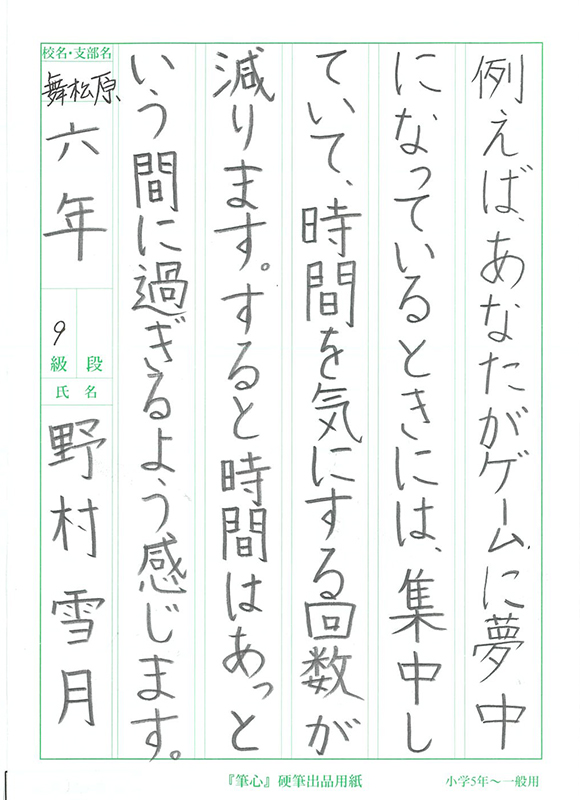 例えば、あなたがゲームに夢中
になっているときには、集中し
ていて、時間を気にする回数が
減ります。すると時間はあっと
いう間に過ぎるよう感じます。
校名・支部名
舞松原
六年
9
級 段
氏名
野村雪月
『筆心』硬筆出品用紙
小学5年～一般用